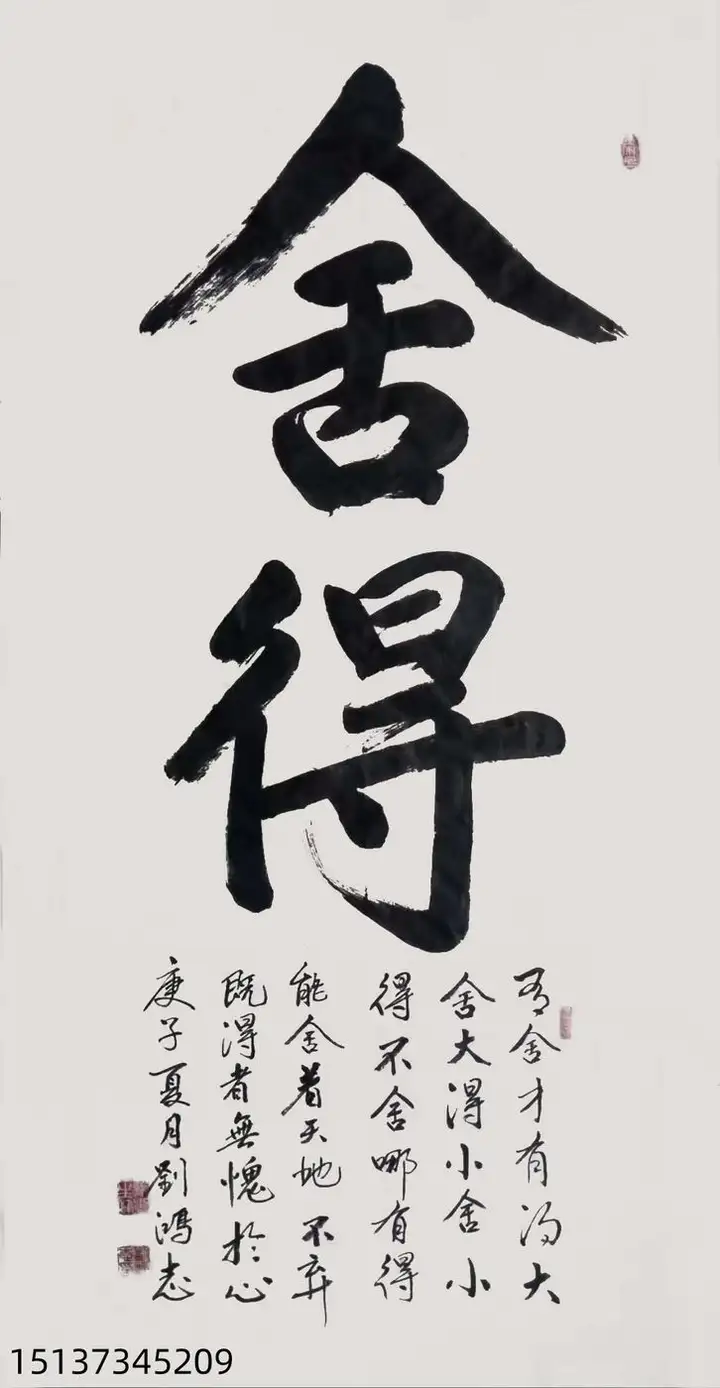 舍
得
有舍才有得大
舍大得小舍小
得不舍哪有得
能舍着天地不弃
既得者無愧於心
庚子夏月劉鴻志
15137345209